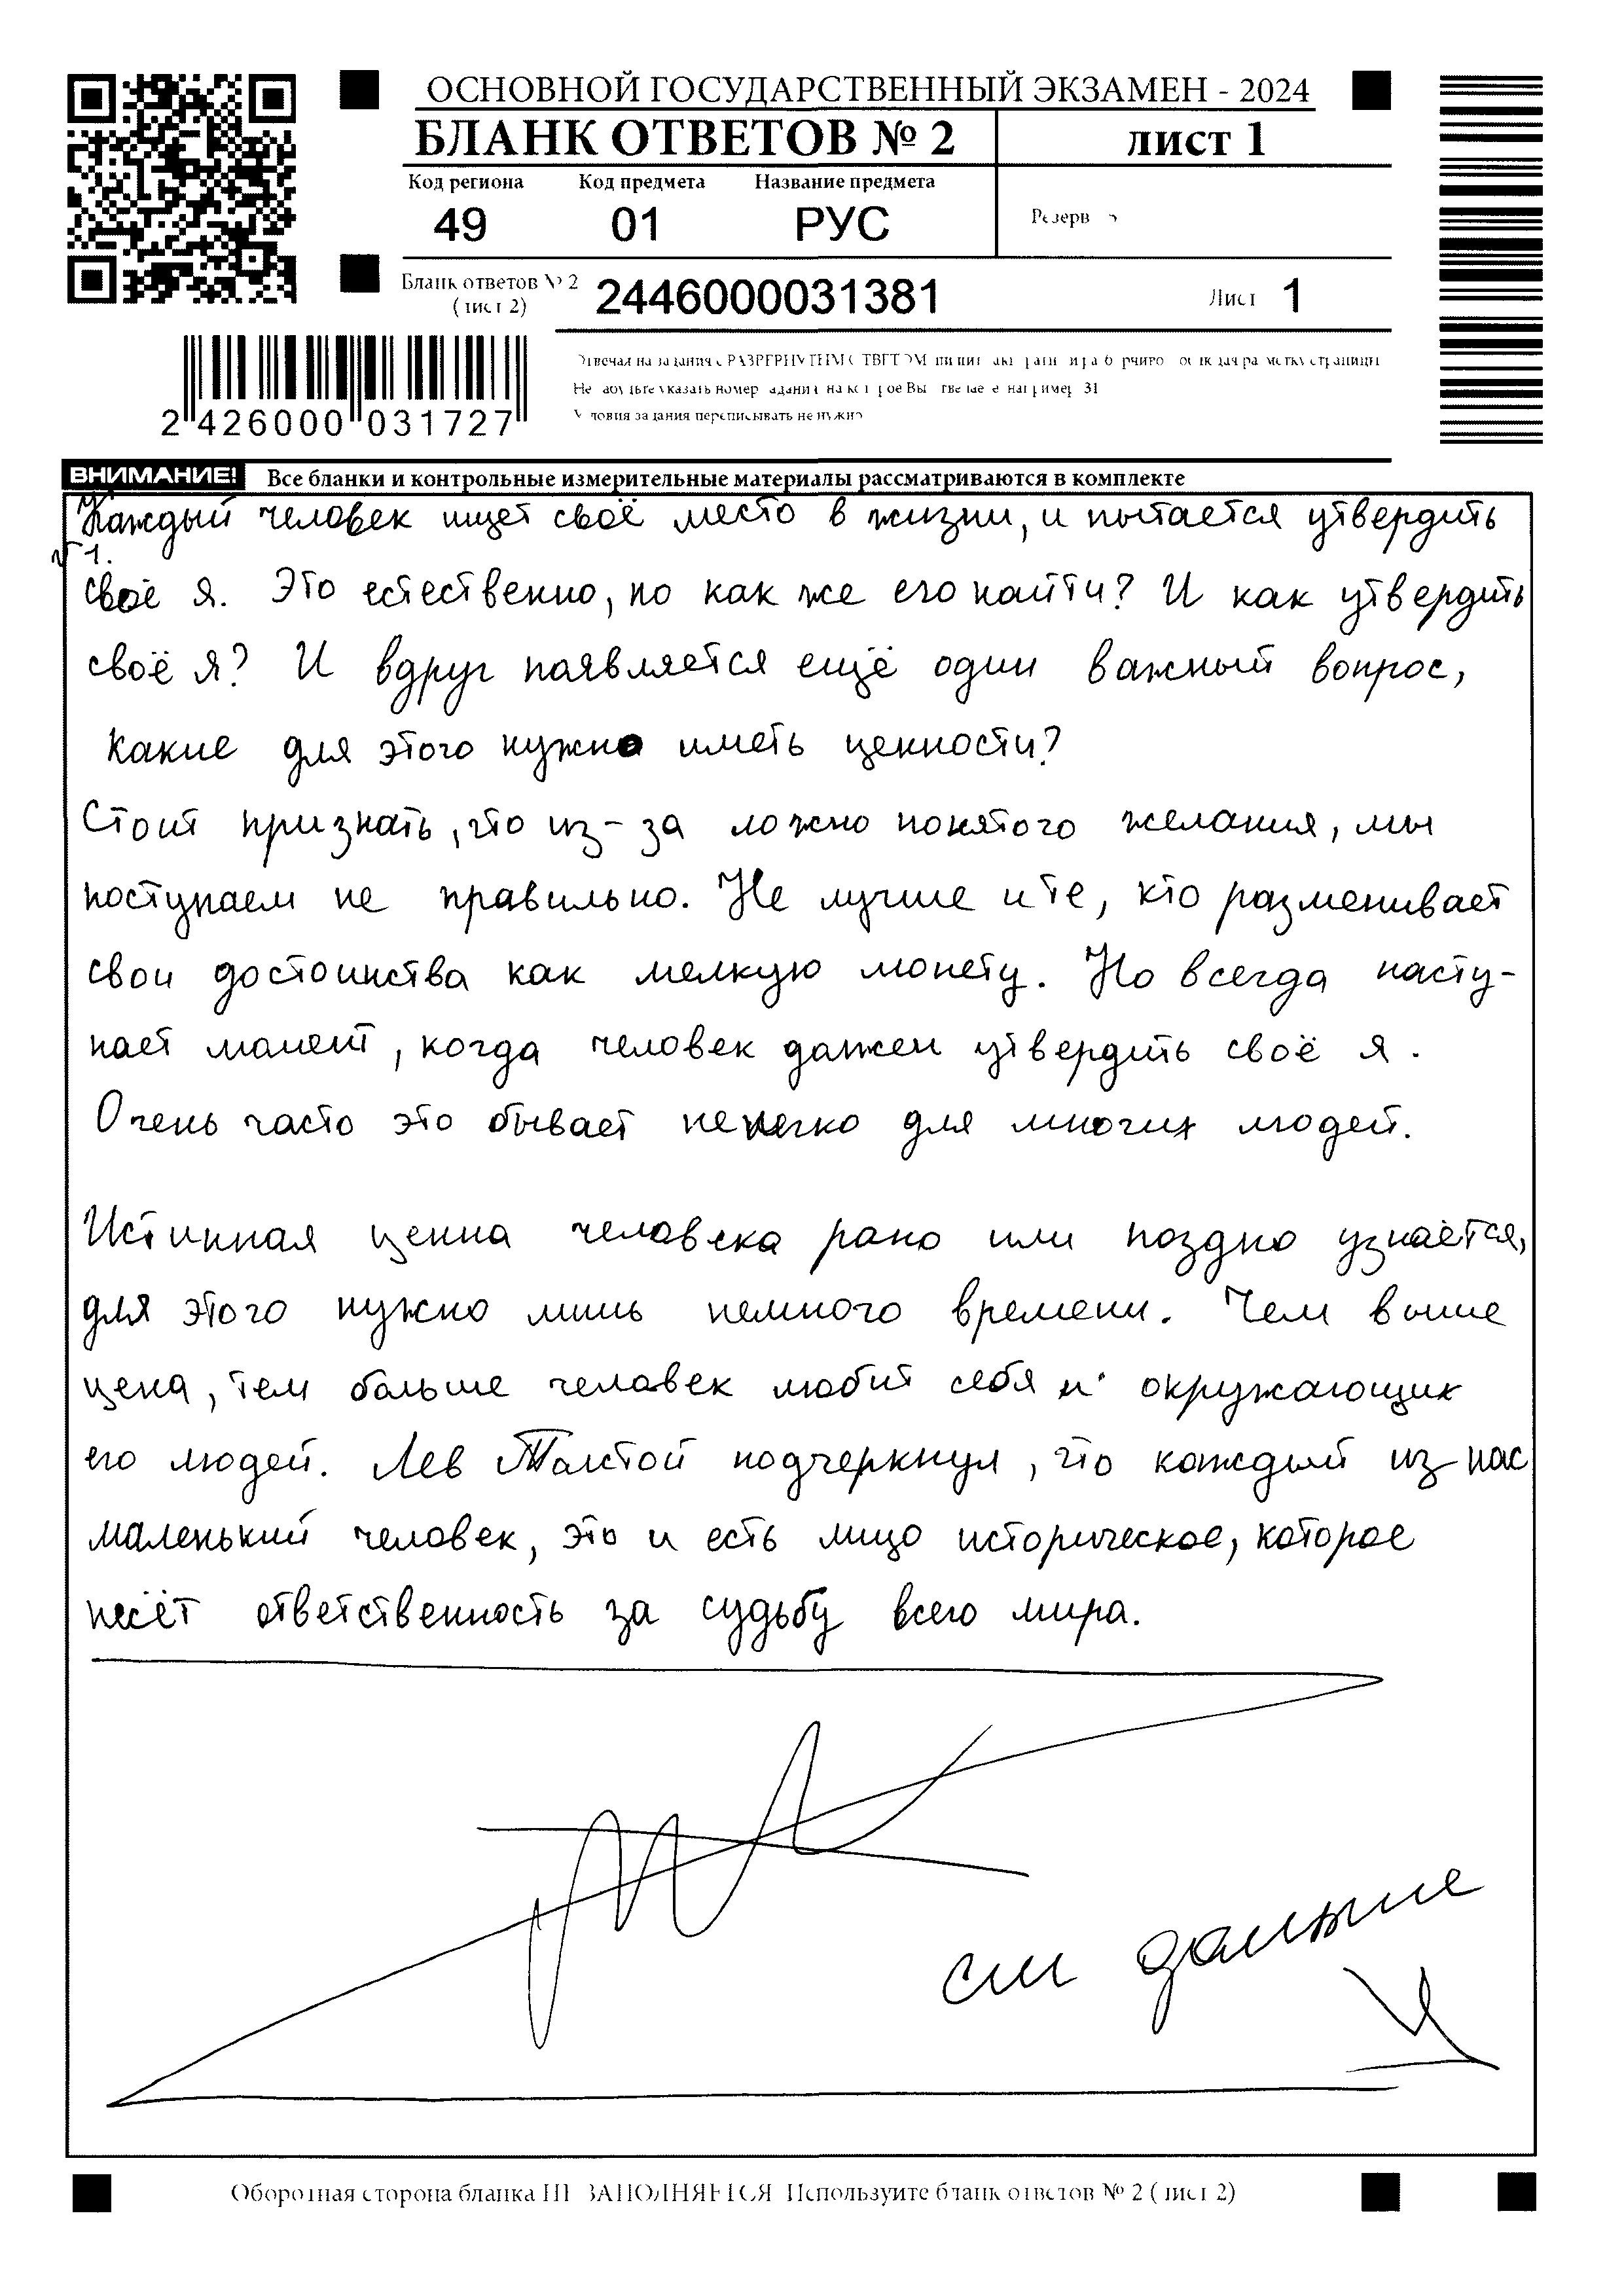 ОСНОВНОЙ ГОСУДАРСТВЕННЫЙ ЭКЗАМЕН - 2024
БЛАНК ОТВЕТОВ № 2
лист 1
Код региона Код предмета Название предмета
49 01 РУС
Резерв
Бланк ответов № 2
(лист 2)
2446000031381
Лист 1
2 426000 031727
ВНИМАНИЕ! Все бланки и контрольные измерительные материалы рассматриваются в комплекте
Каждый человек ищет своё место в жизни, и пытается утвердить
√1.
своё я. Это естественно, но как же его найти? И как утвердить
своё я? И вдруг появляется ещё один важный вопрос,
какие для этого нужно иметь ценности?
Стоит признать, что из-за ложно понятого желания, мы
поступаем не правильно. Не лучше и те, кто разменивает
свои достоинства как мелкую монету. Но всегда насту-
пает момент, когда человек должен утвердить своё я.
Очень часто это бывает нелегко для многих людей.
Истинная ценна человека рано или поздно узнаётся,
для этого нужно лишь немного времени. Чем выше
цена, тем больше человек любит себя и окружающих
его людей. Лев Толстой подчеркнул, что каждый из нас
маленький человек, это и есть лицо историческое, которое
несёт ответственность за судьбу всего мира.
см дальше
Оборотная сторона бланка НЕ ЗАПОЛНЯЕТСЯ Используйте бланк ответов № 2 (лист 2)